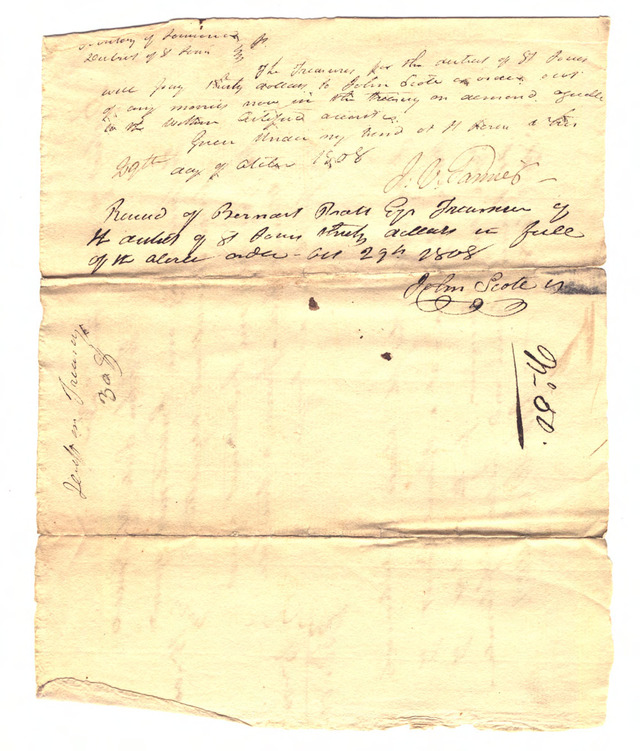 Territory of Louisiana
District of St Louis
The Treasurer for the district of St Louis
will pay thirty dollars to John Scott or order out
of any monies now in the treasury on demand
to the within Certified account
Given under my hand at St
29th day of October 1808
Received of Bernard Pratt Esqr Treasurer of
the district of St Louis thirty dollars in full
of the above order - Oct 29th 1808
John Scott
on Treasury
30$
No 80.